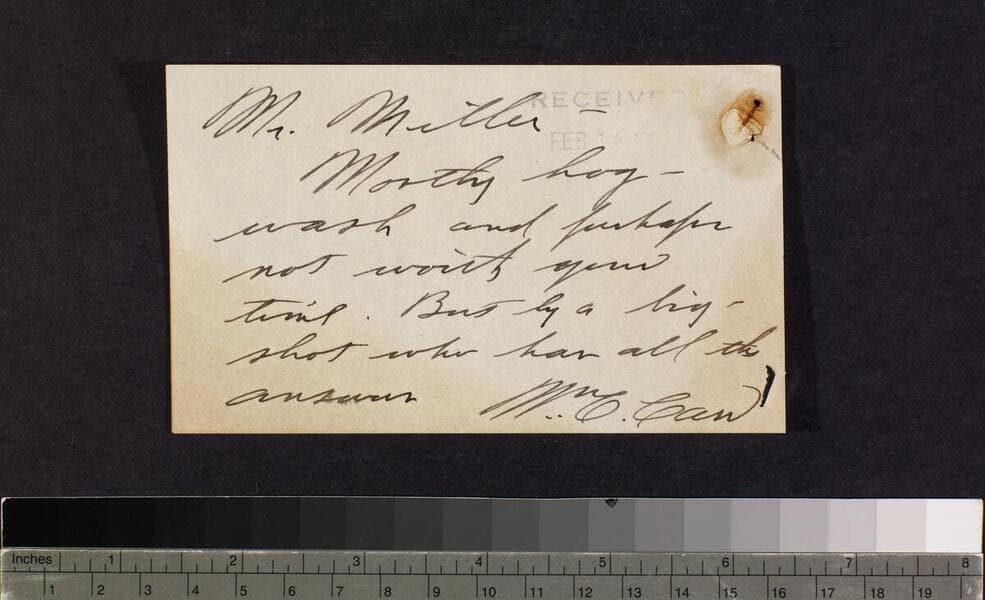 RECEIVE
Mr. Miller -
FEB 14
Mostly hog-
wash and perhaps
not worth your
time. But by a big-
shot who has all the
answers
Wm. C. Carr
Inches 1 2 3 4 5 6 7 8
1 2 3 4 5 6 7 8 9 10 11 12 13 14 15 16 17 18 19